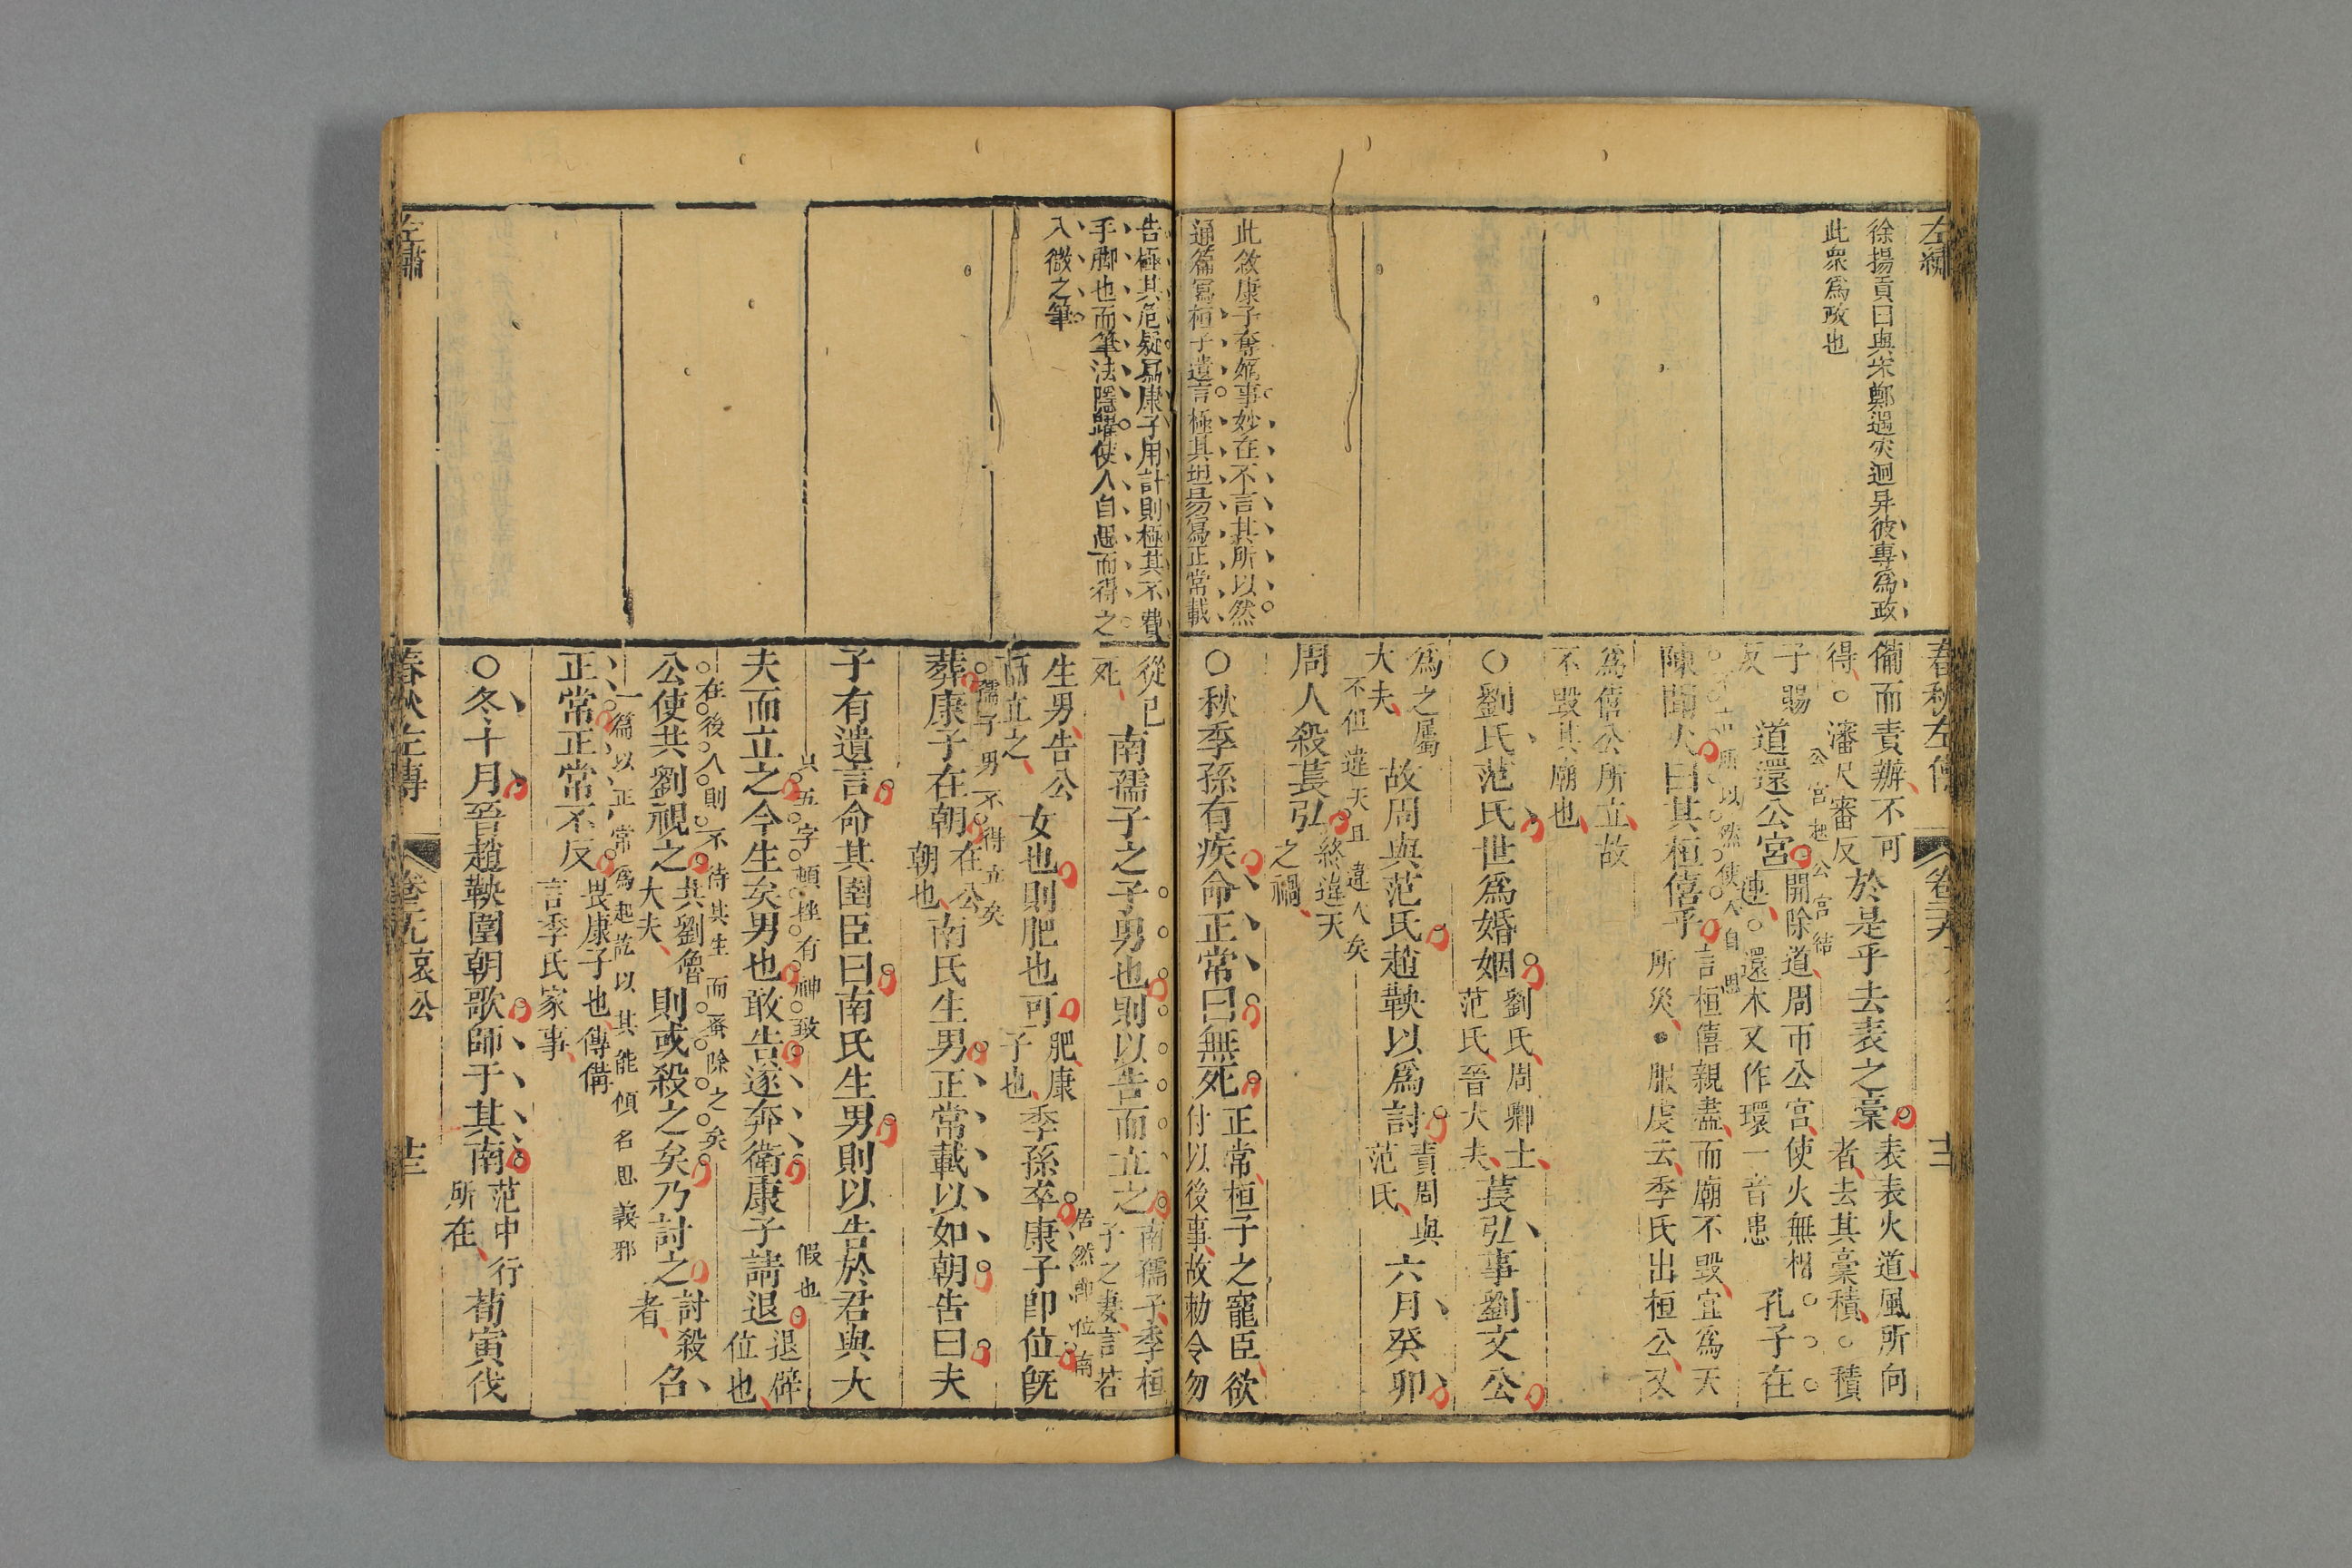 左繡
徐揚貢曰與宋鄭遇災迥异彼專為政
此衆為政也
此敘康子奪嫡事妙在不言其所以然
通篇寫桓子遺言極其坦易寫正常載
春秋左傳
卷
備而責辦不可
得○瀋尺審反
於是乎去表之槀
表表火道風所向
者去其槀積○積
子賜
反
道還公宮
公宮起公宮結
開除道周帀公宮使火無相
連○還本又作環一音患
孔子在
陳聞火曰其桓僖乎
所以然使人自思
言桓僖親盡而廟不毀宜為天
所災●服虔云季氏出桓公又
為僖公所立故
不毀其廟也
○劉氏范氏世為婚姻
劉氏周卿士
范氏晉大夫
萇弘事劉文公
為之屬
大夫
故周與范氏趙鞅以為討
責周與
范氏
六月癸卯
不但違天且違人矣
周人殺萇弘
終違天
之禍
○秋季孫有疾命正常曰無死
正常桓子之寵臣欲
付以後事故勅令勿
告極其危疑寫康子用計則極其不費
手脚也而筆法隱躍使人自思而得之
入微之筆
從已
死
南孺子之子男也則以告而立之
南孺子季桓
子之妻言若
生男告公
而立之
女也則肥也可
肥康
子也
季孫卒康子即位既
居然即位南
孺子男不得立矣
葬康子在朝
在公
朝也
南氏生男正常載以如朝告曰夫
子有遺言命其圉臣曰南氏生男則以告於君與大
只五字頓挫有神致
假也
夫而立之今生矣男也敢告遂奔衛康子請退
退辟
位也
在後人則不待其生而蚤除之矣
公使共劉視之
共劉魯
大夫
則或殺之矣乃討之
討殺
者
召
一篇以正常為起訖以其能傾名思義邪
正常正常不反
畏康子也傳備
言季氏家事
○冬十月晉趙鞅圍朝歌師于其南
范中行
所在
荀寅伐
左繡
春秋左傳
哀公